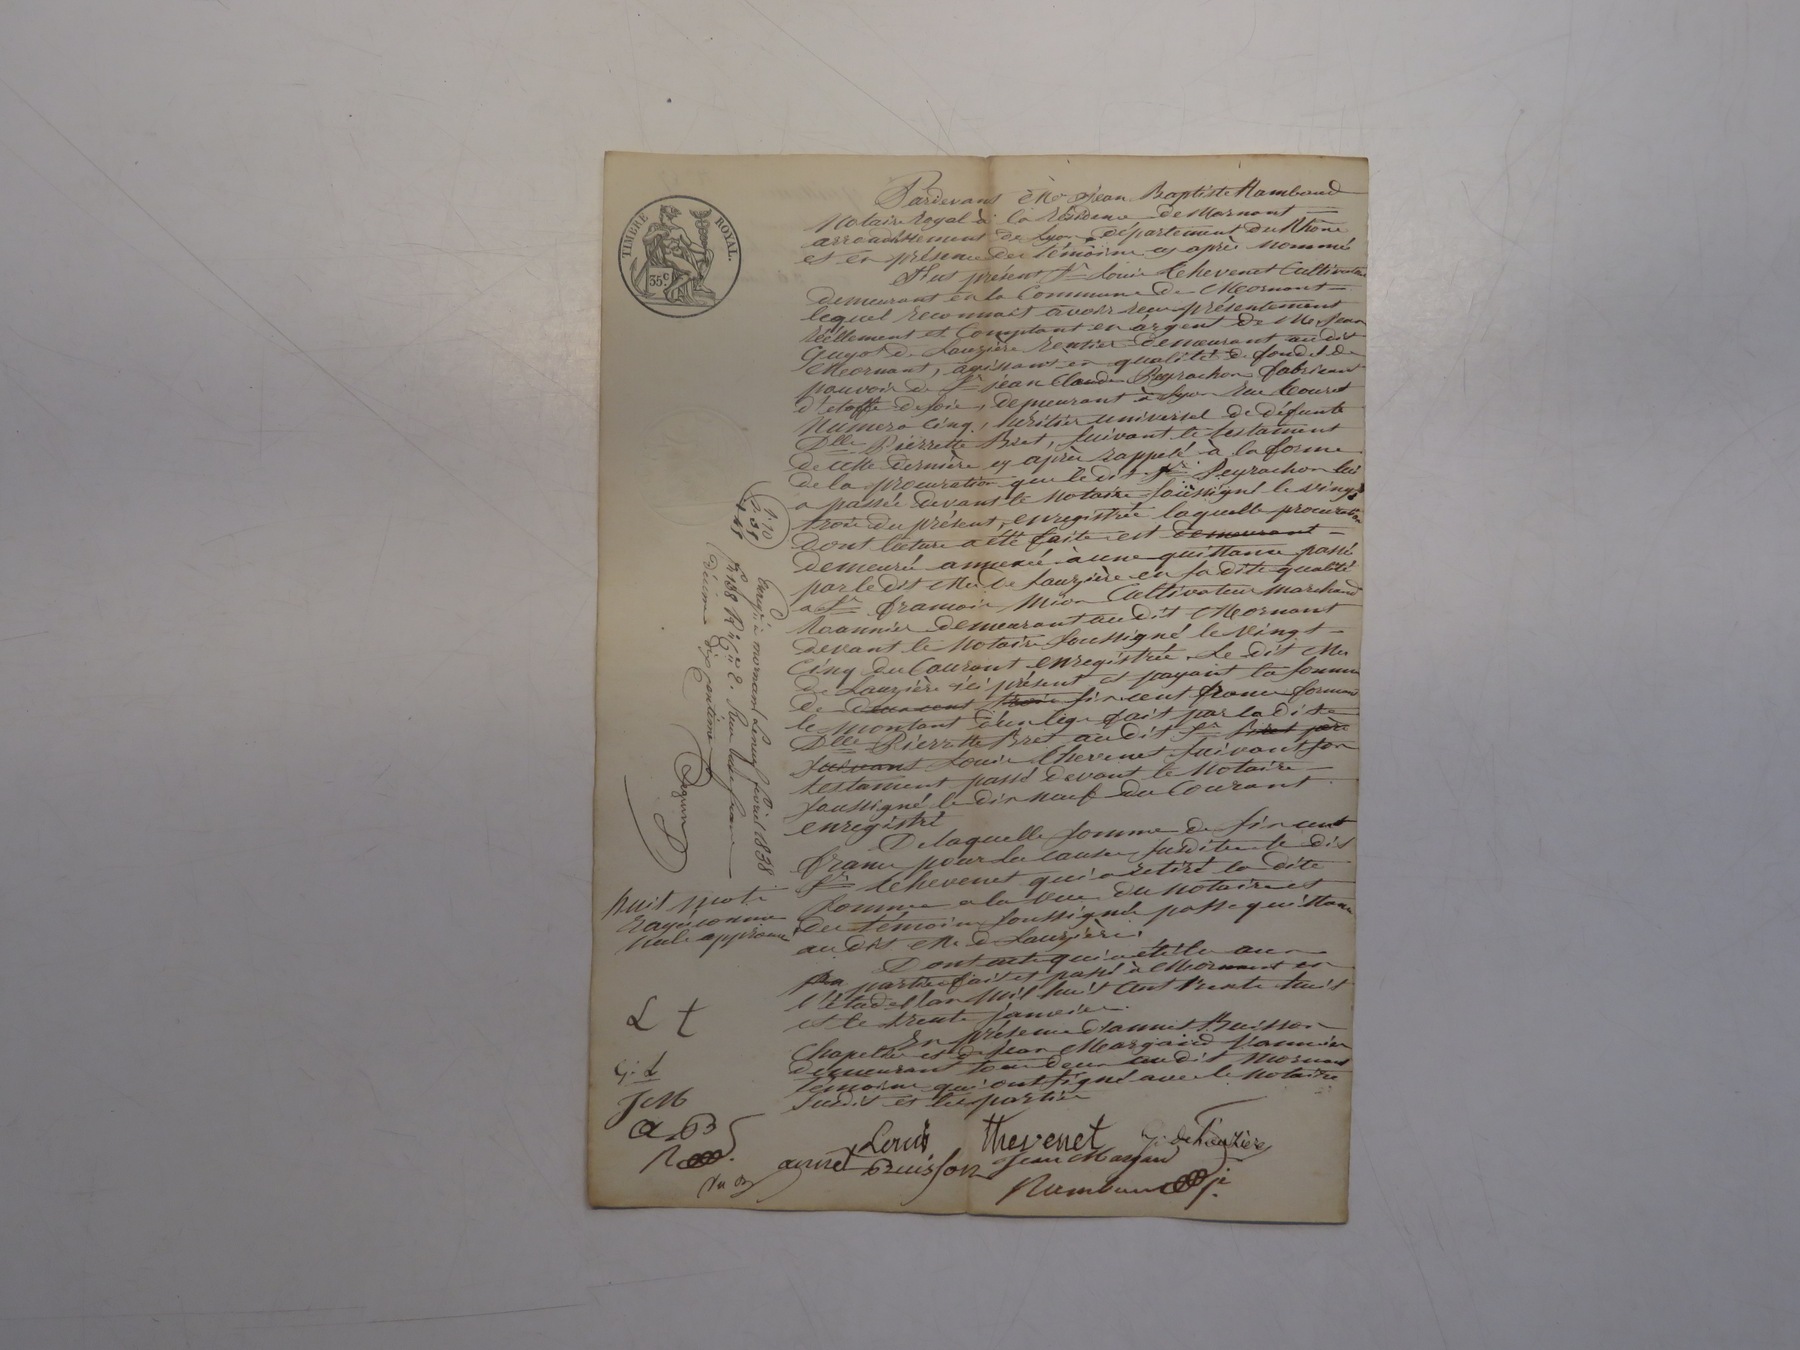 TIMBRE ROYAL.
35c.
Pardevant Me Jean Baptiste Rambaud
Notaire Royal à la résidence de Mornant
arrondissement de Lyon, département du Rhône
et en présence des témoins cy après nommés
Fut présent Sr Louis Thevenet Cultivateur
demeurant en la Commune de Mornant
lequel reconnait avoir reçu présentement
réellement et Comptant en argent de Mr Jean
Guyot de Lauzière rentier demeurant au dit
Mornant, agissant en qualité de fondé de
pouvoir de Sr jean Claude Peyrachon fabricant
d'étoffe de soie, demeurant à Lyon rue
Numero Cinq, héritier universel de défunte
Dlle Pierrette Bret, suivant le testament
de cette dernière cy après rappelé à la forme
de la procuration que le dit Sr Peyrachon lui
a passée devant le Notaire soussigné le vingt
trois du présent, enregistrée laquelle procuration
dont lecture a été faite est demeurant
demeuré annexée à une quittance passé
par le dit Mr de Lauzière en sa dite qualité
a Sr francois Cultivateur marchand
demeurant au dit Mornant
devant le Notaire soussigné le vingt
Cinq du Courant enregistrée. Le dit Mr
de Lauzière ici présent et payant la somme
de deux cent trois six cent francs formant
le montant d'un legs fait par la dite
Dlle Pierrette Bret au dit Sr
suivant Louis Thevenet suivant son
testament passé devant le Notaire
soussigné le dix neuf du Courant
enregistré
De laquelle somme de six cent
francs pour les causes susdites le dit
Sr Thevenet qui a retiré la dite
somme a la vue du notaire et
des témoins soussignés passe quittance
au dit Mr de Lauzière.
Dont acte qui a été lu aux
parties fait et passé à Mornant en
l'étude l'an Mil huit cent trente huit
et le trente janvier.
En présence d'annet Buisson
Chapelier et de Jean Margand
demeurant tous deux au dit Mornant
témoins qui ont signé avec le notaire
susdit et les parties
Louis Thevenet G. de Lauzière
annet Buisson Jean Margand
Rambaud
Enregré à mornant le neuf février 1838
décime dix centimes
huit mots
rayés comme
nuls approuvé
L t
G. L
J M
a B
R